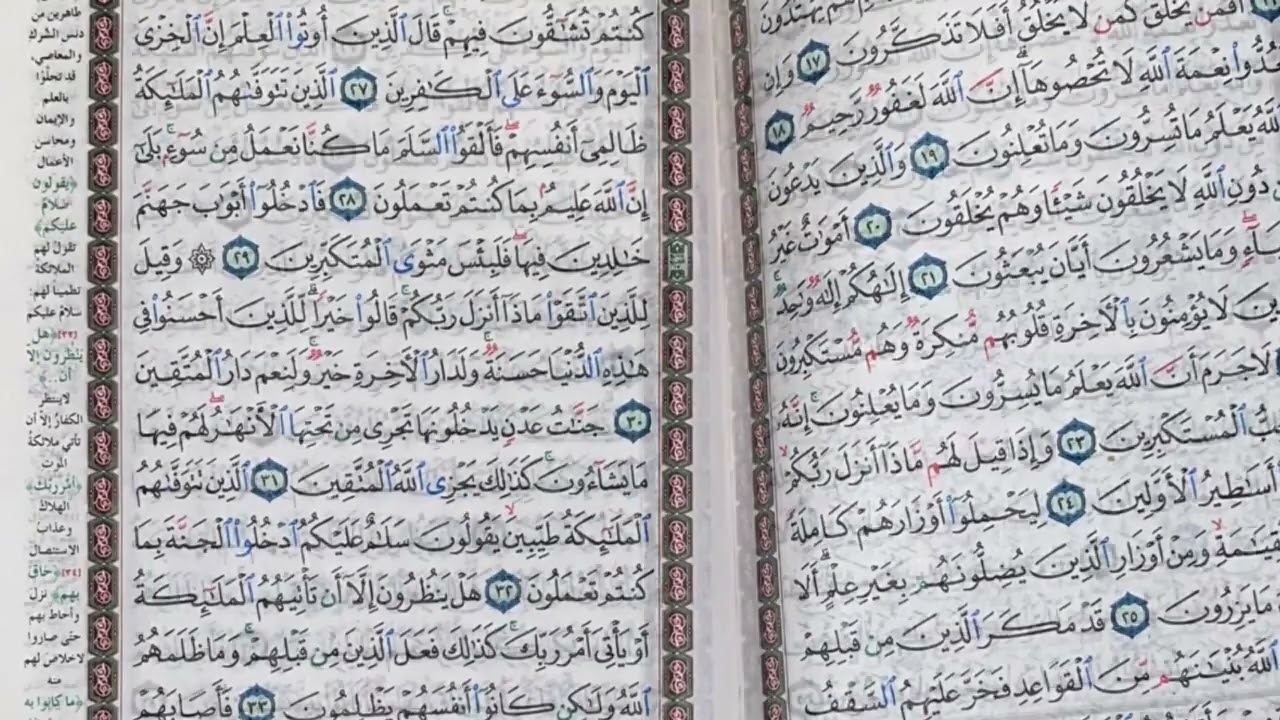 يَهْتَدُونَ
أَفَمَن يَخْلُقُ كَمَن لَّا يَخْلُقُ أَفَلَا تَذَكَّرُونَ ١٧ وَإِن
نِعْمَةَ ٱللَّهِ لَا تُحْصُوهَآ إِنَّ ٱللَّهَ لَغَفُورٌ رَّحِيمٌ ١٨
يَعْلَمُ مَا تُسِرُّونَ وَمَا تُعْلِنُونَ ١٩ وَٱلَّذِينَ يَدْعُونَ
دُونِ ٱللَّهِ لَا يَخْلُقُونَ شَيْـًٔا وَهُمْ يُخْلَقُونَ ٢٠ أَمْوَٰتٌ غَيْرُ
وَمَا يَشْعُرُونَ أَيَّانَ يُبْعَثُونَ ٢١ إِلَٰهُكُمْ إِلَٰهٌ وَٰحِدٌ
لَا يُؤْمِنُونَ بِٱلْأَخِرَةِ قُلُوبُهُم مُّنكِرَةٌ وَهُم مُّسْتَكْبِرُونَ
لَا جَرَمَ أَنَّ ٱللَّهَ يَعْلَمُ مَا يُسِرُّونَ وَمَا يُعْلِنُونَ إِنَّهُۥ
ٱلْمُسْتَكْبِرِينَ ٢٣ وَإِذَا قِيلَ لَهُم مَّاذَآ أَنزَلَ رَبُّكُمْ
أَسَٰطِيرُ ٱلْأَوَّلِينَ ٢٤ لِيَحْمِلُوٓا۟ أَوْزَارَهُمْ كَامِلَةً
وَمِنْ أَوْزَارِ ٱلَّذِينَ يُضِلُّونَهُم بِغَيْرِ عِلْمٍ أَلَا
مَا يَزِرُونَ ٢٥ قَدْ مَكَرَ ٱلَّذِينَ مِن قَبْلِهِمْ
ٱللَّهُ بُنْيَٰنَهُم مِّنَ ٱلْقَوَاعِدِ فَخَرَّ عَلَيْهِمُ ٱلسَّقْفُ
كُنتُمْ تُشَٰٓقُّونَ فِيهِمْ قَالَ ٱلَّذِينَ أُوتُوا۟ ٱلْعِلْمَ إِنَّ ٱلْخِزْىَ
ٱلْيَوْمَ وَٱلسُّوٓءَ عَلَى ٱلْكَٰفِرِينَ ٢٧ ٱلَّذِينَ تَتَوَفَّىٰهُمُ ٱلْمَلَٰٓئِكَةُ
ظَالِمِىٓ أَنفُسِهِمْ فَأَلْقَوُا۟ ٱلسَّلَمَ مَا كُنَّا نَعْمَلُ مِن سُوٓءٍ بَلَىٰٓ
إِنَّ ٱللَّهَ عَلِيمٌۢ بِمَا كُنتُمْ تَعْمَلُونَ ٢٨ فَٱدْخُلُوٓا۟ أَبْوَٰبَ جَهَنَّمَ
خَٰلِدِينَ فِيهَا فَلَبِئْسَ مَثْوَى ٱلْمُتَكَبِّرِينَ ٢٩ ۞ وَقِيلَ
لِلَّذِينَ ٱتَّقَوْا۟ مَاذَآ أَنزَلَ رَبُّكُمْ قَالُوا۟ خَيْرًا لِّلَّذِينَ أَحْسَنُوا۟ فِى
هَٰذِهِ ٱلدُّنْيَا حَسَنَةٌ وَلَدَارُ ٱلْأَخِرَةِ خَيْرٌ وَلَنِعْمَ دَارُ ٱلْمُتَّقِينَ
٣٠ جَنَّٰتُ عَدْنٍ يَدْخُلُونَهَا تَجْرِى مِن تَحْتِهَا ٱلْأَنْهَٰرُ لَهُمْ فِيهَا
مَا يَشَآءُونَ كَذَٰلِكَ يَجْزِى ٱللَّهُ ٱلْمُتَّقِينَ ٣١ ٱلَّذِينَ تَتَوَفَّىٰهُمُ
ٱلْمَلَٰٓئِكَةُ طَيِّبِينَ يَقُولُونَ سَلَٰمٌ عَلَيْكُمُ ٱدْخُلُوا۟ ٱلْجَنَّةَ بِمَا
كُنتُمْ تَعْمَلُونَ ٣٢ هَلْ يَنظُرُونَ إِلَّآ أَن تَأْتِيَهُمُ ٱلْمَلَٰٓئِكَةُ
أَوْ يَأْتِىَ أَمْرُ رَبِّكَ كَذَٰلِكَ فَعَلَ ٱلَّذِينَ مِن قَبْلِهِمْ وَمَا ظَلَمَهُمُ
ٱللَّهُ وَلَٰكِن كَانُوٓا۟ أَنفُسَهُمْ يَظْلِمُونَ ٣٣ فَأَصَابَهُمْ
طاهرين من
دنس الشرك
والمعاصي،
قد تحلَّوا
بالعلم
والإيمان
ومحاسن
الأعمال
﴿يقولون
سلامٌ
عليكم﴾
تقول لهم
الملائكة
تطميناً لهم:
سلامٌ عليكم
[٣٣] ﴿هل
ينظرون إلا
أن ..﴾
لا ينتظر
الكفار إلا أن
تأتي ملائكة
الموت
﴿أمر ربك﴾
الهلاك
وعذاب
الاستئصال
[٣٤] ﴿حاق
بهم﴾ نزل
وأحاط بهم
حتى صاروا
لا خلاص لهم
منه
﴿ما كانوا به